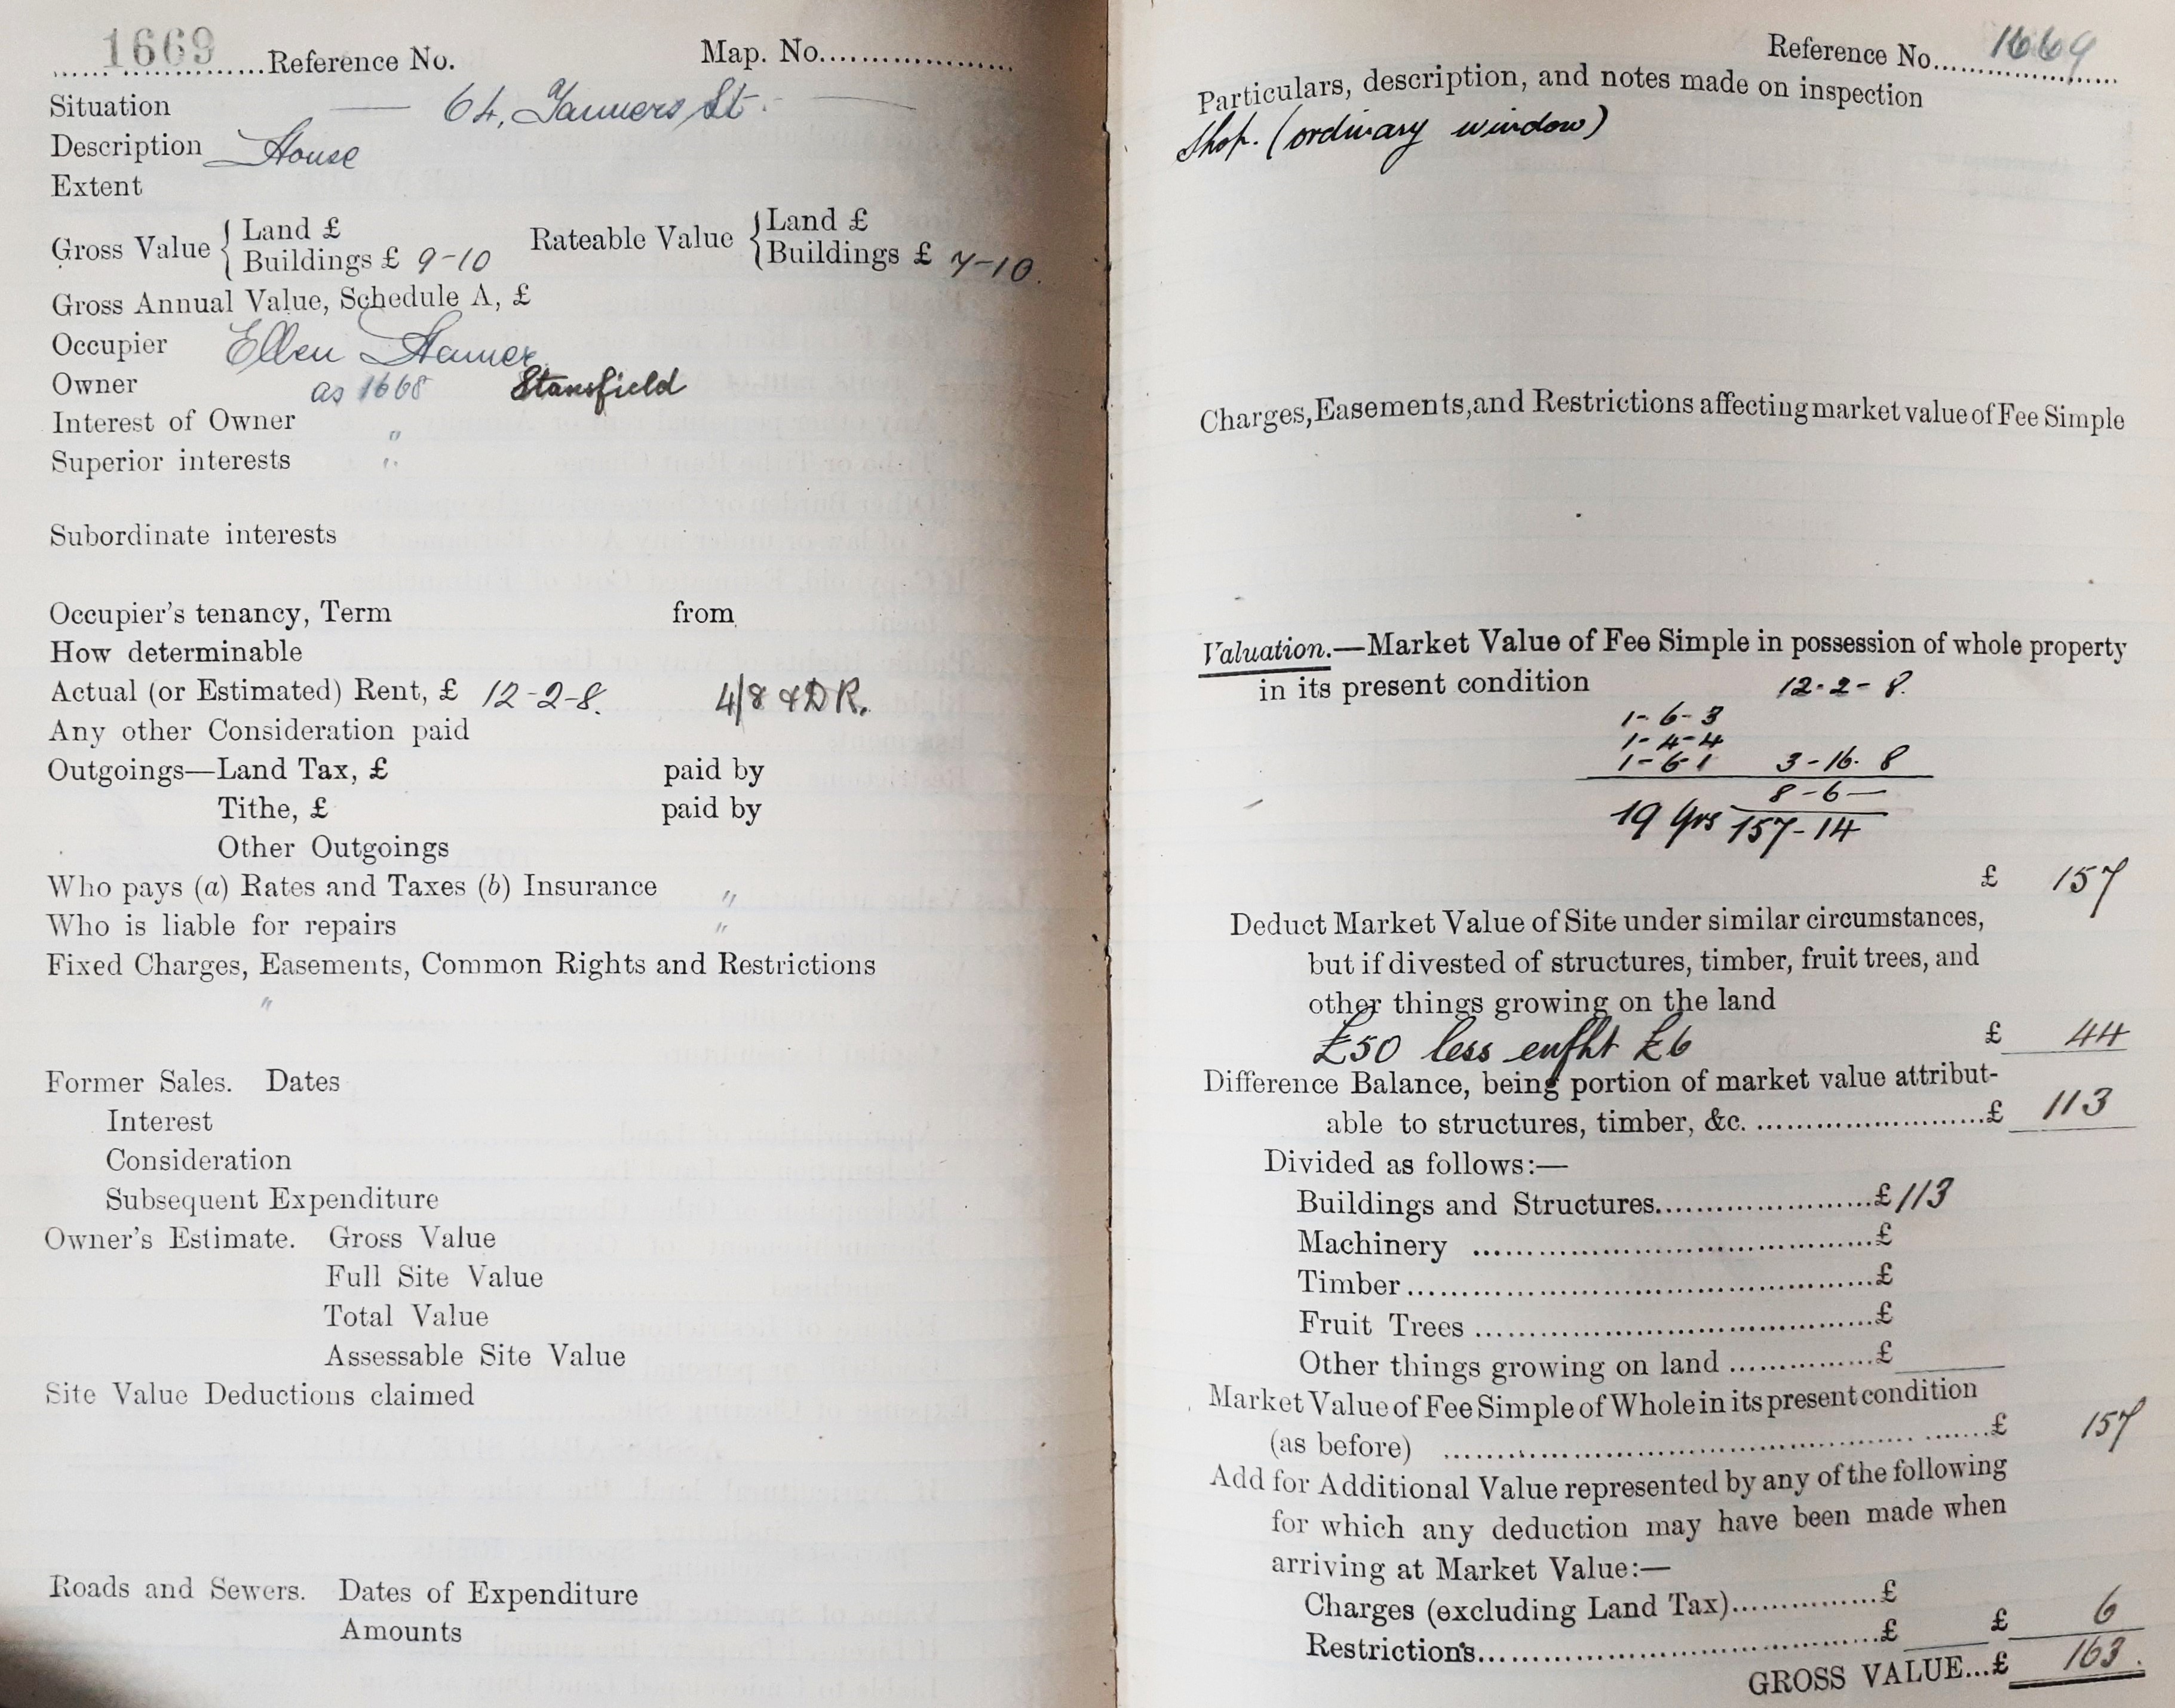 1669 Reference No. Map. No.
Situation — 64, Tanners St. —
Description House
Extent
Gross Value { Land £
Buildings £ 9-10
Rateable Value { Land £
Buildings £ 7-10.
Gross Annual Value, Schedule A, £
Occupier Ellen
Owner as 1668 Stansfield
Interest of Owner "
Superior interests "
Subordinate interests
Occupier's tenancy, Term from
How determinable
Actual (or Estimated) Rent, £ 12-2-8. 4/8 & DR.
Any other Consideration paid
Outgoings—Land Tax, £ paid by
Tithe, £ paid by
Other Outgoings
Who pays (a) Rates and Taxes (b) Insurance "
Who is liable for repairs "
Fixed Charges, Easements, Common Rights and Restrictions
"
Former Sales. Dates
Interest
Consideration
Subsequent Expenditure
Owner's Estimate. Gross Value
Full Site Value
Total Value
Assessable Site Value
Site Value Deductions claimed
Roads and Sewers. Dates of Expenditure
Amounts
Reference No. 1669
Particulars, description, and notes made on inspection
Shop. (ordinary window)
Charges, Easements, and Restrictions affecting market value of Fee Simple
Valuation.—Market Value of Fee Simple in possession of whole property
in its present condition 12-2-8.
1-6-3
1-4-4
1-6-1 3-16-8
8-6-—
19 Yrs 157-14
£ 157
Deduct Market Value of Site under similar circumstances,
but if divested of structures, timber, fruit trees, and
other things growing on the land
£50 less enfht £6 £ 44
Difference Balance, being portion of market value attribut-
able to structures, timber, &c. £ 113
Divided as follows:—
Buildings and Structures £113
Machinery £
Timber £
Fruit Trees £
Other things growing on land £
Market Value of Fee Simple of Whole in its present condition
(as before) £ 157
Add for Additional Value represented by any of the following
for which any deduction may have been made when
arriving at Market Value:—
Charges (excluding Land Tax) £
Restrictions £ £ 6
GROSS VALUE...£ 163.